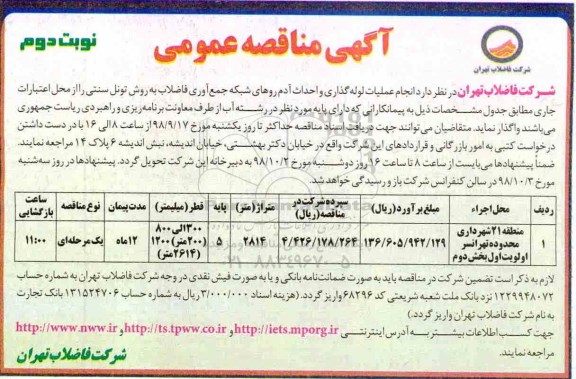 آگهی مناقصه عمومی
نوبت دوم
شرکت فاضلاب تهران
شرکت فاضلاب تهران در نظر دارد انجام عملیات لوله گذاری و احداث آدم روهای شبکه جمع آوری فاضلاب به روش تونل سنتی را از محل اعتبارات
جاری مطابق جدول مشخصات ذیل به پیمانکارانی که دارای پایه مورد نظر در رشته آب از طرف معاونت برنامه ریزی و راهبردی ریاست جمهوری
می باشند واگذار نماید. متقاضیان می توانند جهت دریافت اسناد مناقصه حداکثر تا روز یکشنبه مورخ ۹۸/۹/۱۷ از ساعت ۸ الی ۱۶ با در دست داشتن
درخواست کتبی به امور بازرگانی و قراردادهای این شرکت واقع در خیابان دکتر بهشتی، خیابان اندیشه، نبش اندیشه ۶ پلاک ۱۴ مراجعه نمایند.
ضمناً پیشنهادها می بایست از ساعت ۸ تا ساعت ۱۶ روز دوشنبه مورخ ۹۸/۱۰/۲ به دبیرخانه این شرکت تحویل گردد. پیشنهادها در روز سه شنبه
مورخ ۹۸/۱۰/۳ در سالن کنفرانس شرکت باز و رسیدگی خواهد شد.
ردیف محل اجراء مبلغ برآورد (ریال) سپرده شرکت در مناقصه (ریال) متراژ (متر) پایه قطر (میلیمتر) مدت پیمان نوع مناقصه ساعت بازگشایی
۱ منطقه ۲۱ شهرداری محدوده تهرانسر اولویت اول بخش دوم ۱۳۶/۶۰۵/۹۴۲/۱۲۹ ۴/۴۲۶/۱۷۸/۲۶۴ ۲۸۱۴ ۵ ۳۰۰ الی ۸۰۰ (۲۰۰ متر) ۱۲۰۰ (۲۶۱۴ متر) ۱۲ ماه یک مرحله ای ۱۱:۰۰
لازم به ذکر است تضمین شرکت در مناقصه باید به صورت ضمانت نامه بانکی و یا به صورت فیش نقدی در وجه شرکت فاضلاب تهران به شماره حساب
۱۲۲۹۹۴۸۰۷۲ نزد بانک ملت شعبه شریعتی کد ۶۸۲۹۶ واریز گردد. (هزینه اسناد ۳/۰۰۰/۰۰۰ ریال به شماره حساب ۱۳۱۵۲۴۷۰۶ بانک تجارت
به نام شرکت فاضلاب تهران واریز گردد.)
جهت کسب اطلاعات بیشتر به آدرس اینترنتی http://iets.mporg.ir و http://ts.tpww.co.ir و http://www.nww.ir
مراجعه نمایند.
شرکت فاضلاب تهران